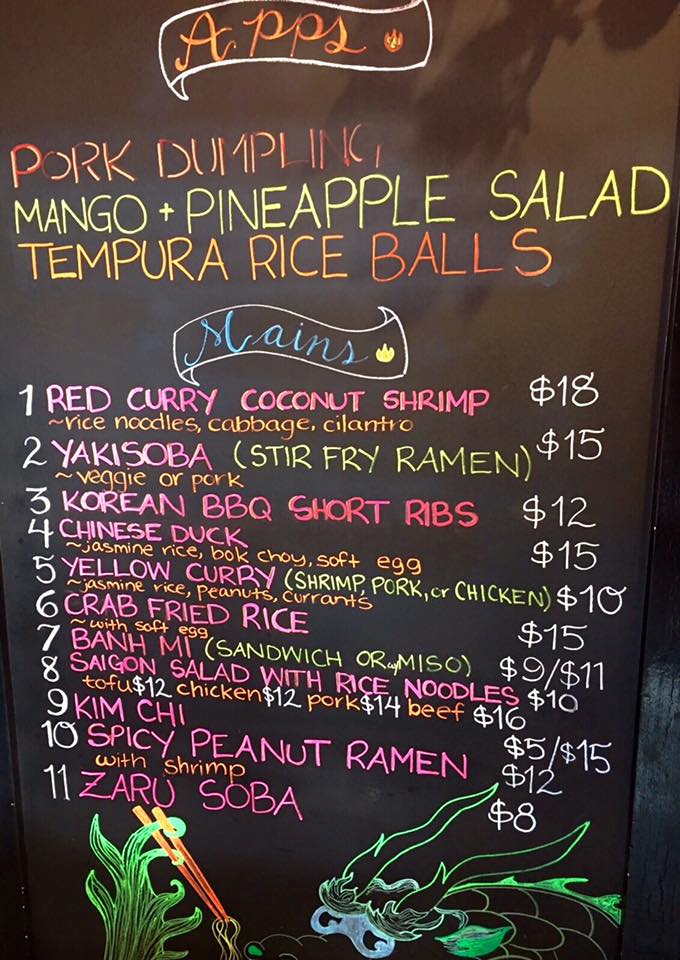 Apps
PORK DUMPLING
MANGO + PINEAPPLE SALAD
TEMPURA RICE BALLS
Mains
1 RED CURRY COCONUT SHRIMP $18
~rice noodles, cabbage, cilantro
2 YAKISOBA (STIR FRY RAMEN) $15
~veggie or pork
3 KOREAN BBQ SHORT RIBS $12
4 CHINESE DUCK $15
~jasmine rice, bok choy, soft egg
5 YELLOW CURRY (SHRIMP, PORK, or CHICKEN) $10
~jasmine rice, peanuts, currants
6 CRAB FRIED RICE $15
~with soft egg
7 BANH MI (SANDWICH OR w/MISO) $9/$11
8 SAIGON SALAD WITH RICE NOODLES $10
tofu $12 chicken $12 pork $14 beef $16
9 KIM CHI $5/$15
10 SPICY PEANUT RAMEN $12
with shrimp
11 ZARU SOBA $8